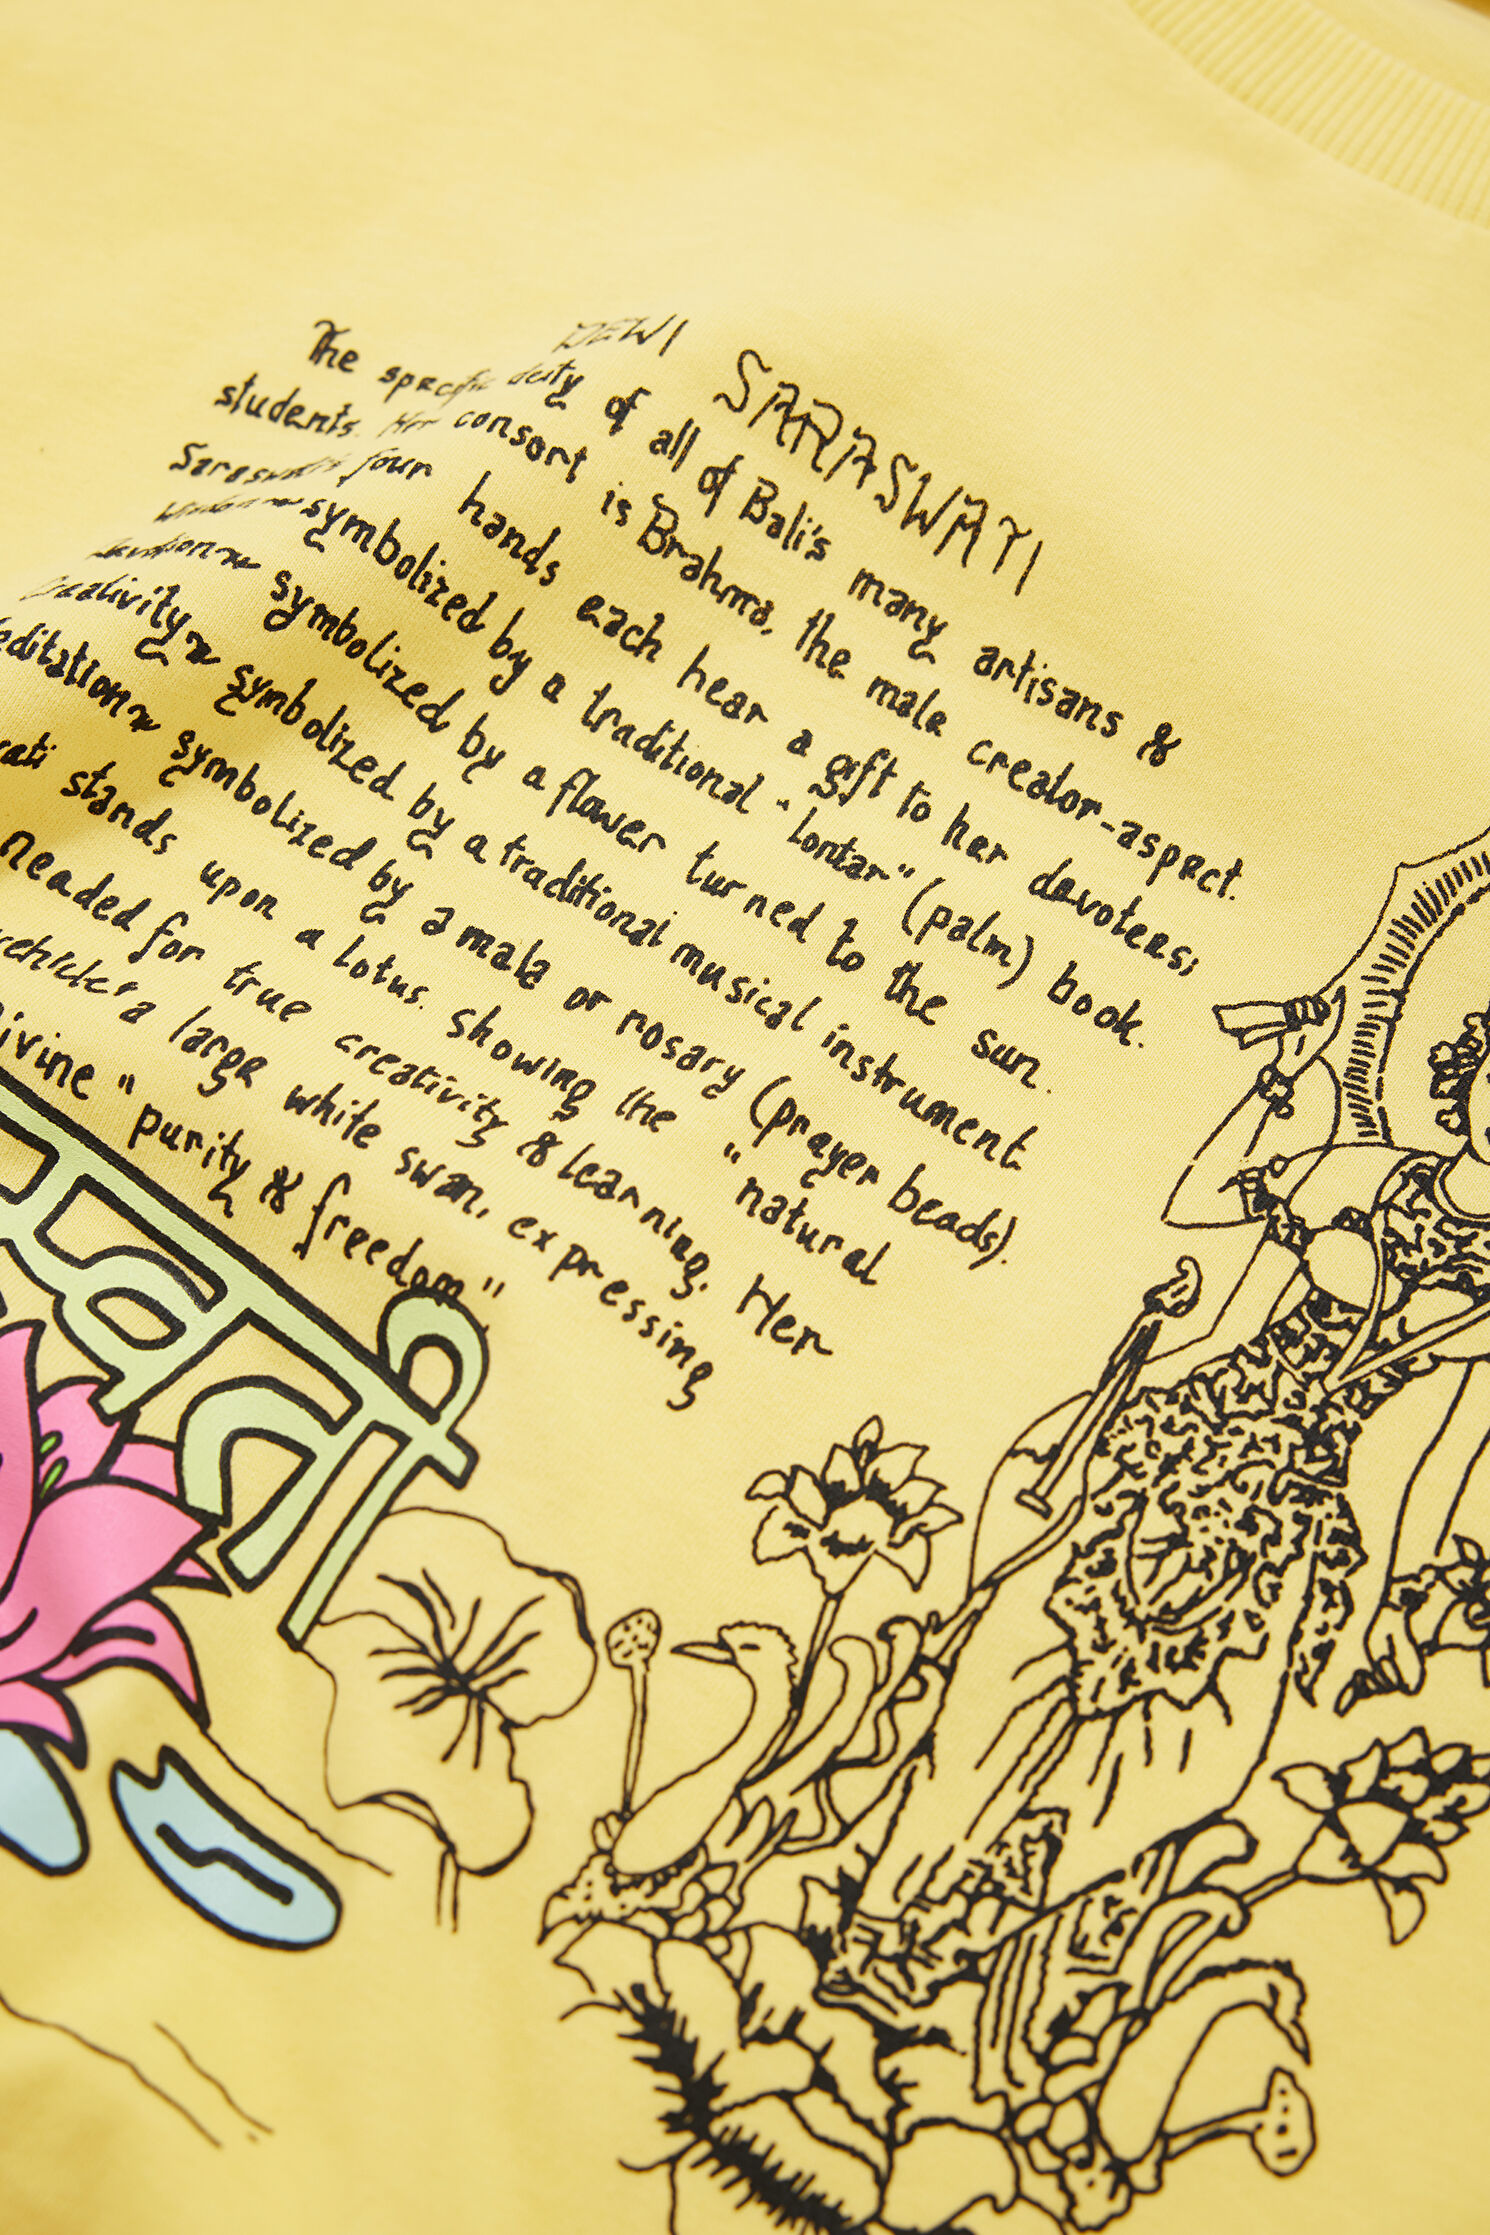 DEWI SARASWATI
The specific deity of all of Bali's many artisans &
students. Her consort is Brahma, the male creator-aspect.
Saraswati's four hands each hear a gift to her devotees;
Wisdom ~ symbolized by a traditional "lontar" (palm) book.
devotion ~ symbolized by a flower turned to the sun.
Creativity ~ symbolized by a traditional musical instrument.
editation ~ symbolized by a mala or rosary (prayer beads).
stands upon a lotus. Showing the "natural
needed for true creativity & learning. Her
a large white swan, expressing
ivine "purity & freedom"